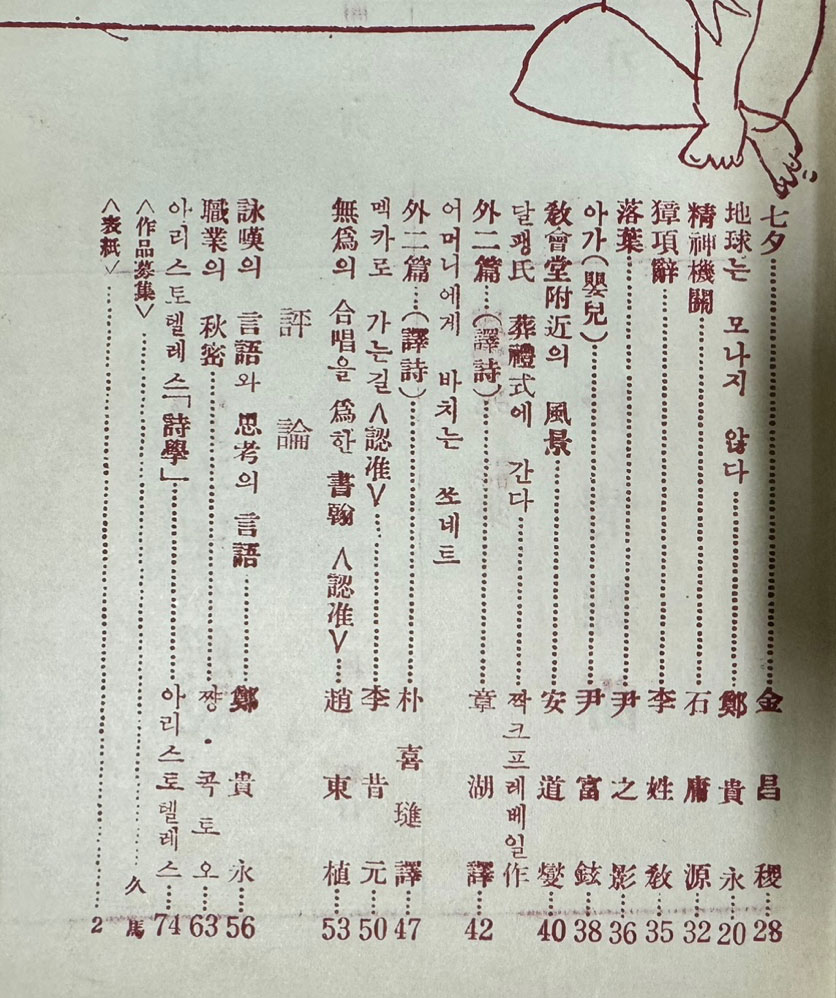 七夕……金昌稷……28
地球는 모나지 않다……鄭貴永……20
精神機關……石庸源……32
獐項辭……李姓敎……35
落葉……尹之影……36
아가(嬰兒)……尹富鉉……38
敎會堂附近의 風景……安道燮……40
달팽氏 葬禮式에 간다……짝크프레베일作
外二篇…(譯詩)……章湖譯……42
어머니에게 바치는 쏘네트
外二篇…(譯詩)……朴喜璡譯……47
멕카로 가는길<認准>……李昔元……50
無爲의 合唱을 爲한 書翰 <認准>……趙東植……53
評論
詠嘆의 言語와 思考의 言語……鄭貴永……56
職業의 秋密……쨩・콕토오……63
아리스토텔레스「詩學」……아리스토텔레스……74
<作品募集>……久馬
<表紙>……2